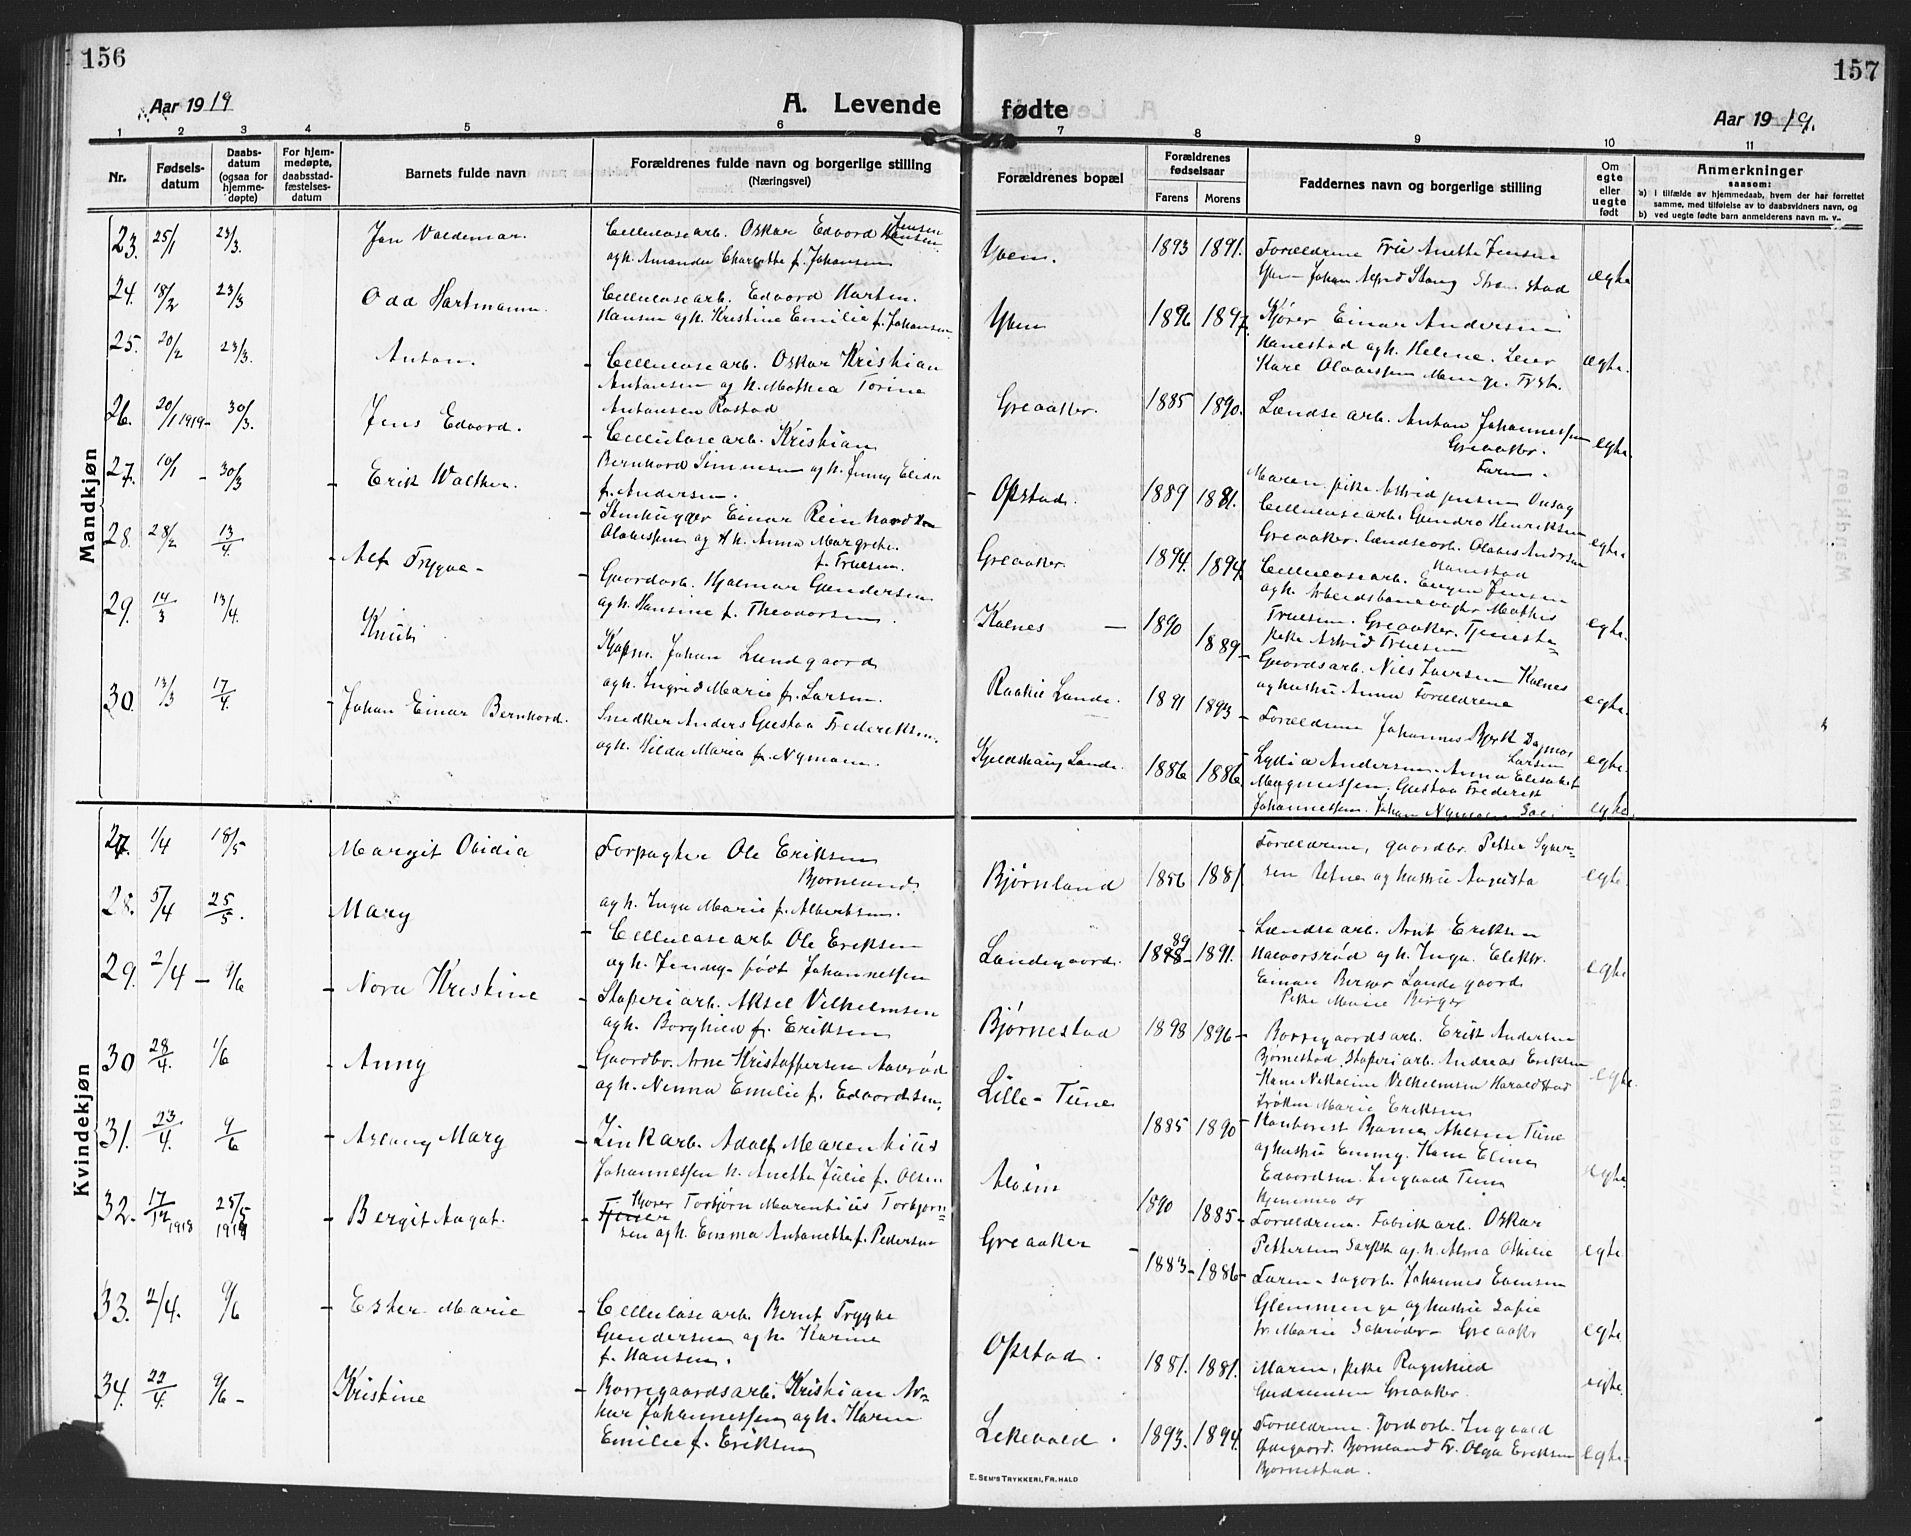 156
157
Aar 1919
A. Levende fødte
Aar 1919.
1 2 3 4 5 6 7 8 9 10 11
Nr.
Fødsels-
datum
Daabs-
datum
(ogsaa for
hjemme-
døpte)
For hjem-
medøpte,
daabsstad-
fæstelses-
datum
Barnets fulde navn
Forældrenes fulde navn og borgerlige stilling
(Næringsvei)
Forældrenes bopæl
Forældrenes
fødselsaar
Farens
Morens
Faddernes navn og borgerlige stilling
Om
egte
eller
uegte
født
Anmerkninger
saasom:
a) i tilfælde av hjemmedaab, hvem der har forrettet
samme, med tilføielse av to daabsvidners navn, og
b) ved uegte fødte barn anmelderens navn m. v.
Mandkjøn
23. 25/1 23/3. Jan Valdemar. Cellulosearb. Oskar Edvard Jensen
agh. Amanda Charlotte f. Johansen
Yven. 1893 1891. Forældrene Fru Anette Jensen
Yven Johan Alfred Stang Strømstad egte
24. 18/2 23/3 Odd Hartmann. Cellulosearb. Edvard Marten.
Hansen agh. Kristine Emilie f. Johansen
Yven 1896 1897. Kjører Einar Andersen
Hanestad agh. Helene. egte.
25. 20/2 23/3. Anton. Cellulosearb. Oskar Kristian
Antonsen og h. Mathea Torine
Antonsen Rostad
Greaaker. 1885 1890. Lændsearb. Anton Johannessen
Greaaker. egte.
Faren.
26. 20/1 1919 30/3. Jens Edvard. Cellulosearb. Kristian
Bernhard Simensen agh. Jenny Elida
f. Andersen.
Opstad. 1889 1881. Maren, pike Astrid Jensen
Cellulosearb. Gundro Henriksen
Greaaker. Lændsearb. Olaves Andersen
Hanestad egte
27. 10/1 30/3 Erik Walther. Stenhugger Einar Reinhardt
Olavessen og h. Anna Margrethe.
f. Truesen.
Greaaker. 1894. 1894. Cellulosearb. Eugen Jensen
Truesen. Greaaker. Tjeneste-
pike Astrid Truesen egte.
28. 28/2 13/4. Alf Trygve Gaardarb. Hjalmar Gundersen
agh. Hansine f. Theodorsen.
Kalnes 1890 1889 Gaardsarb. Nils Iversen Kalnes
og hustru Anna Forældrene egte.
29. 14/3 13/4. Knut Kjøpm. Johan Lundgaard
agh. Ingrid Marie f. Larsen.
Raakil Lande. 1891 1893 Forældrene Johannes Bjerk Dagmar
Larsen egte.
30. 13/3 17/4. Johan Einar Bernhard. Snedker Anders Gustav Frederiksen.
agh. Hilda Maria f. Nyman.
Kjeldshaug Lande. 1886 1886. Lydia Andersen. Anna Elisabet
Magnussen. Gustav Frederik
Johannessen. Johan Nyman egte
Kvindekjøn
27. 1/4 18/5 Margit Ovidia Forpagter Ole Eriksen
Bjørnland.
agh. Inga Marie f. Albertsen.
Bjørnland 1856 1881 Forældrene, gaardbr. Petter
og hustru Augusta egte.
28. 5/4 25/5. Mary Cellulosearb. Ole Eriksen
agh. Jenny født Johannessen
Landegaard. 1889 1891. Lændsearb. Arnt Eriksen
Halvorsrød og h. Inga. Elektr.
Einar Berger Landegaard
Pike Marie Berger egte
29. 2/4 9/6 Nora Kristine Staperiarb. Aksel Vilhelmsen
agh. Borghild f. Eriksen
Bjørnestad 1898 1896 Borregaardsarb. Erik Andersen
Bjørnestad, Staperiarb. Andreas Eriksen
Kane Nikoline Vilhelmsen
Frøken Marie Eriksen egte.
30 28/4. 1/6 Anny Gaardbr. Arne Kristoffersen Aasrød
agh. Nenna Emilie f. Edvardsen,
Lille-Tune 1885 1890 Kontorist Bjarne Ahlsen Tune
og hustru Emmy. Kane Elina
Edvardsen. Ingvald Tune egte
31. 23/4. 9/6 Aslaug Mary Zinkarb. Adolf Marenkius
Johannessen h. Anetta Julie f. Olsen
Alvim 1890 1885 Hjemmedøbt
Forældrene. Fabrikarb. Oskar
Pettersen Sarpsb. og h. Alma Othilie egte
32. 17/12 1918 25/5 1919 Bergit Aagot. Kjører Torbjørn Marentius Torbjørn-
sen agh. Emma Antonetta f. Pedersen
Greaaker 1883 1886 Faren. sagarb. Johannes Evensen
Glemminge og hustru Sofie
fr. Marie Schrøder Greaaker egte
33. 2/4. 9/6 Ester Marie Cellulosearb. Bernt Trygve
Gundersen agh. Karine
f. Hansen.
Opstad. 1881. 1881. Maren, pike Ragnhild
Gudrunsen Greaaker. egte.
34. 22/4. 9/6 Kristine Borregaardsarb. Kristian Ar-
thur Johannessen agh. Karen
Emilie f. Eriksen
Lekevold. 1893. 1894. Forældrene. Jordarb. Ingvald
Bjørneland Fr. Olga Eriksen
Bjørnestad. egte.
E. SEM'S TRYKKERI, FR.HALD